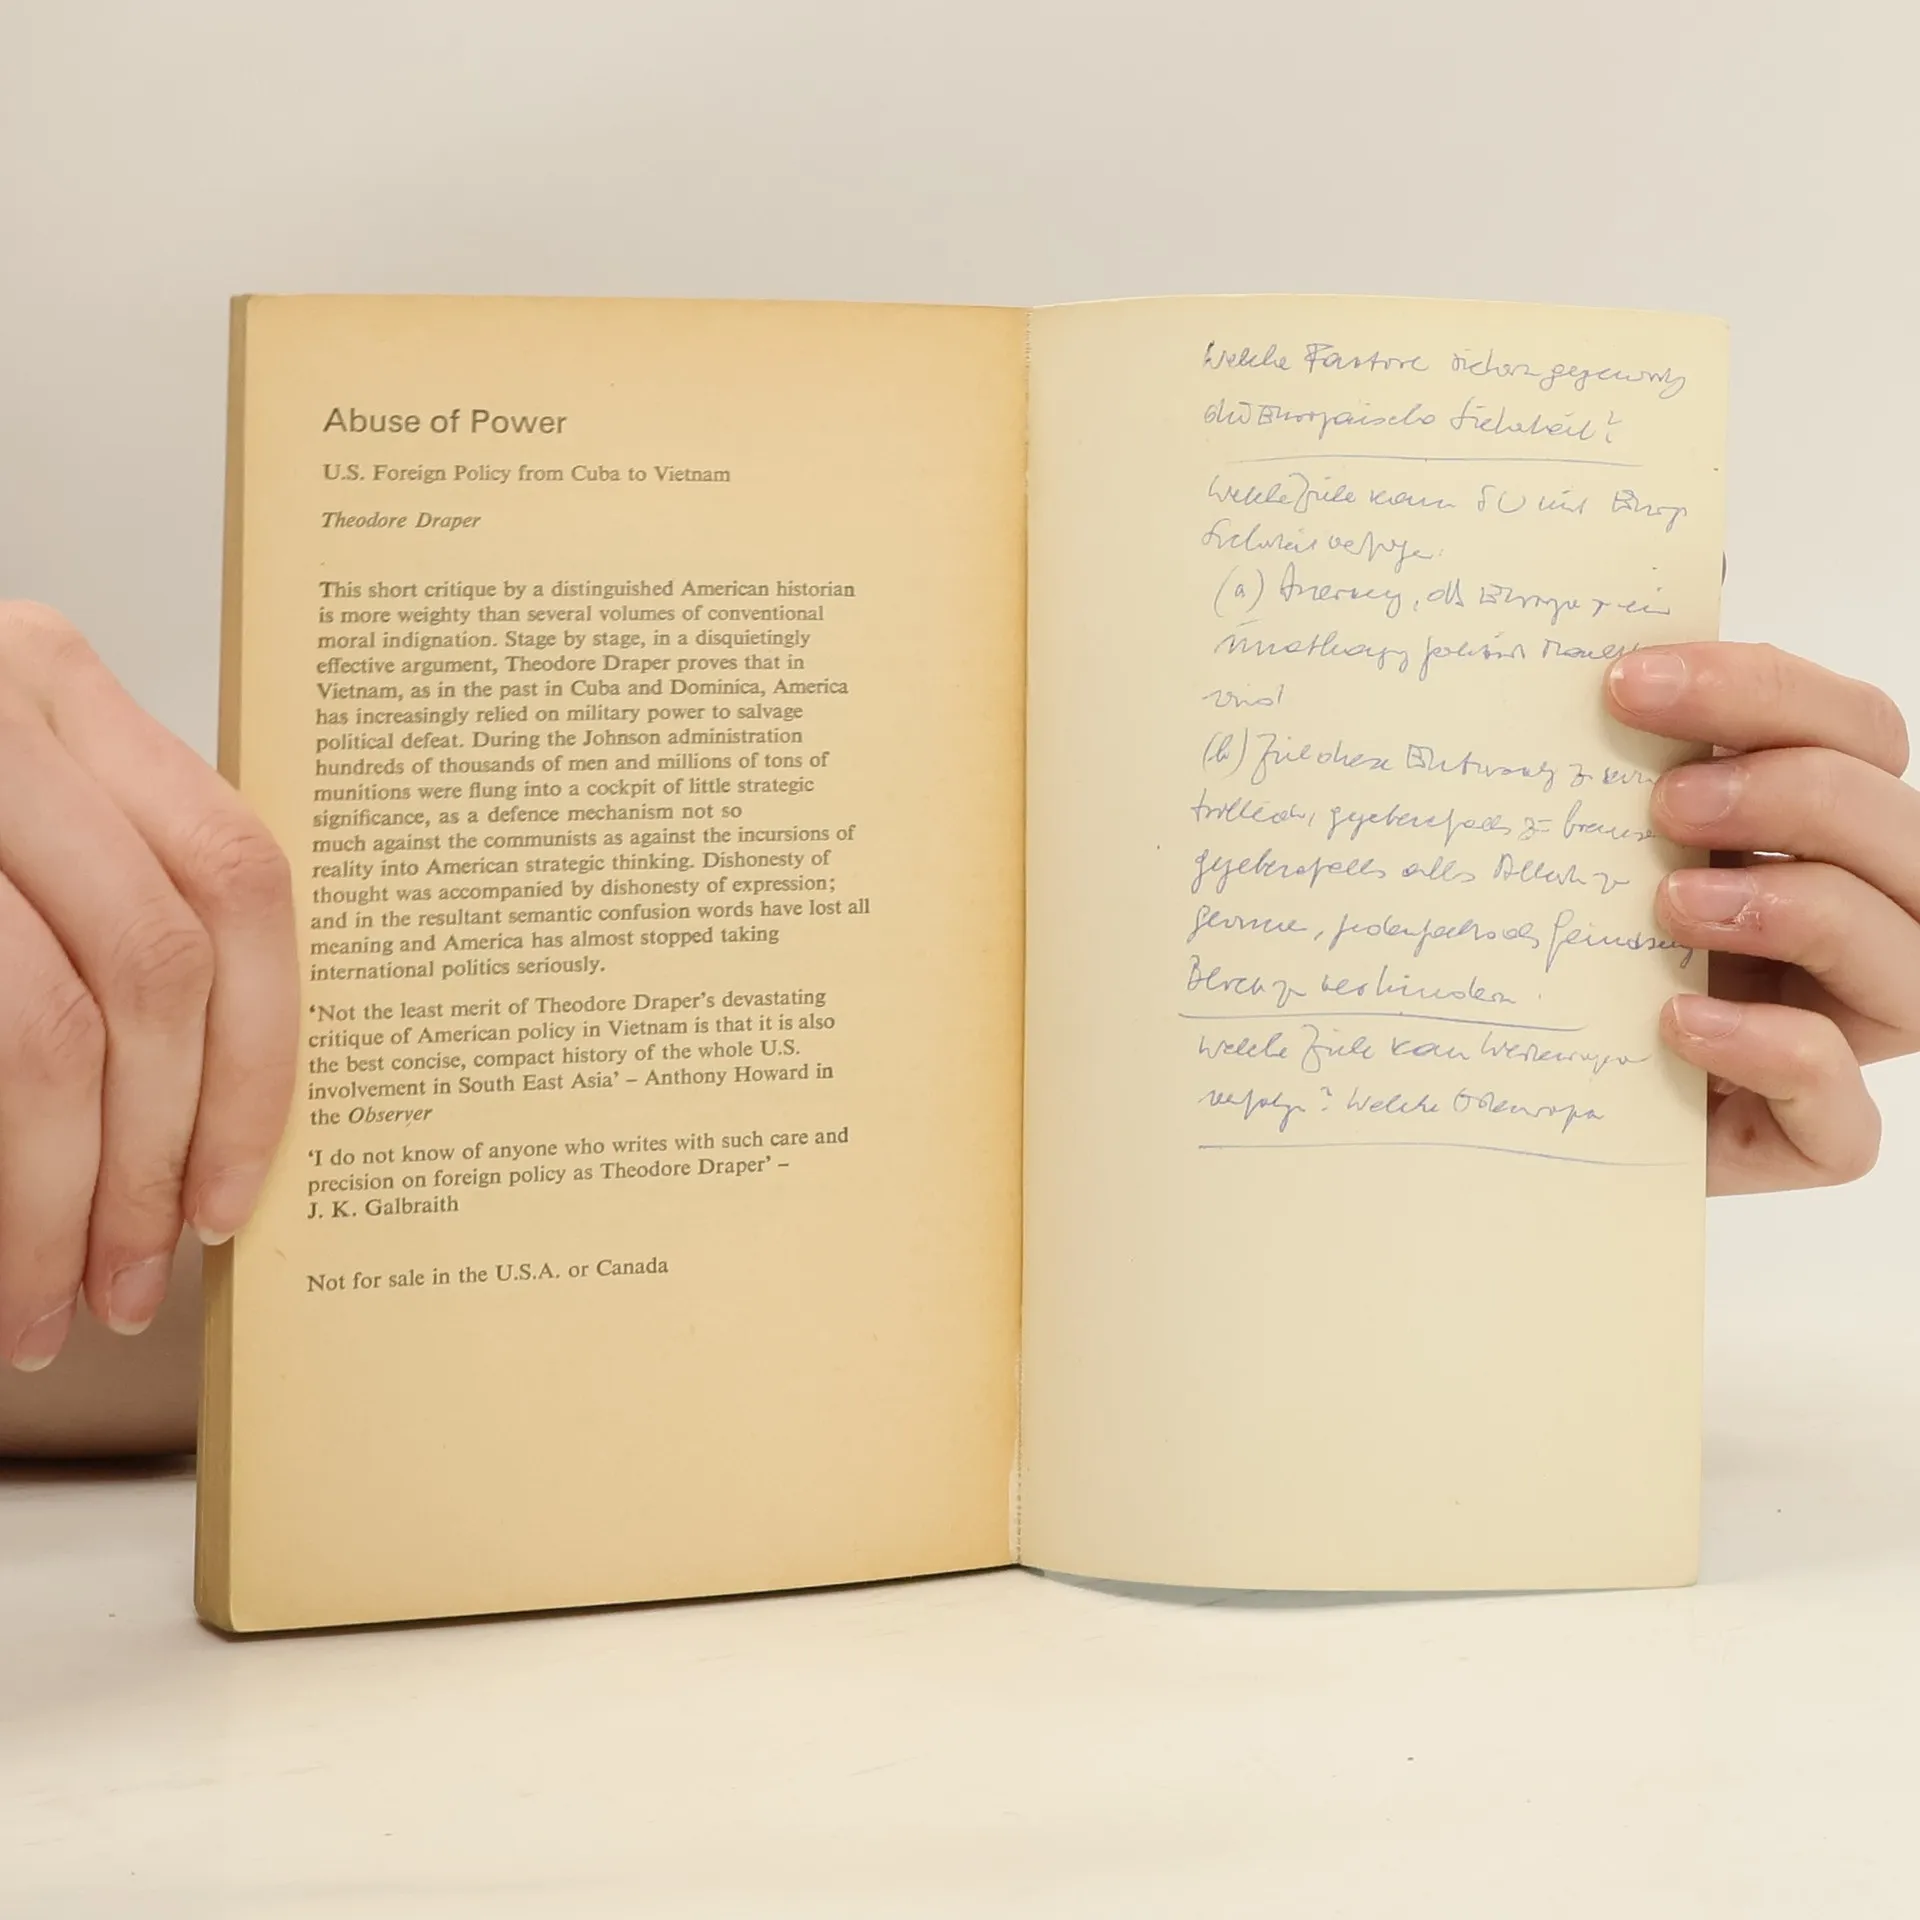 Abuse of Power
U.S. Foreign Policy from Cuba to Vietnam
Theodore Draper
This short critique by a distinguished American historian
is more weighty than several volumes of conventional
moral indignation. Stage by stage, in a disquietingly
effective argument, Theodore Draper proves that in
Vietnam, as in the past in Cuba and Dominica, America
has increasingly relied on military power to salvage
political defeat. During the Johnson administration
hundreds of thousands of men and millions of tons of
munitions were flung into a cockpit of little strategic
significance, as a defence mechanism not so
much against the communists as against the incursions of
reality into American strategic thinking. Dishonesty of
thought was accompanied by dishonesty of expression;
and in the resultant semantic confusion words have lost all
meaning and America has almost stopped taking
international politics seriously.
‘Not the least merit of Theodore Draper’s devastating
critique of American policy in Vietnam is that it is also
the best concise, compact history of the whole U.S.
involvement in South East Asia’ – Anthony Howard in
the Observer
‘I do not know of anyone who writes with such care and
precision on foreign policy as Theodore Draper’ –
J. K. Galbraith
Not for sale in the U.S.A. or Canada
Welche
die Europäische Sicherheit?
Welche Ziele kann SU mit Europ
Sicherheit verfolgen
(a)
(b) Ziel dieser Entwicklung zu kon
gegebenenfalls zu
gegebenenfalls
verhindern
Welche Ziele kann Westeuropa
verfolgen? Welche Osteuropa